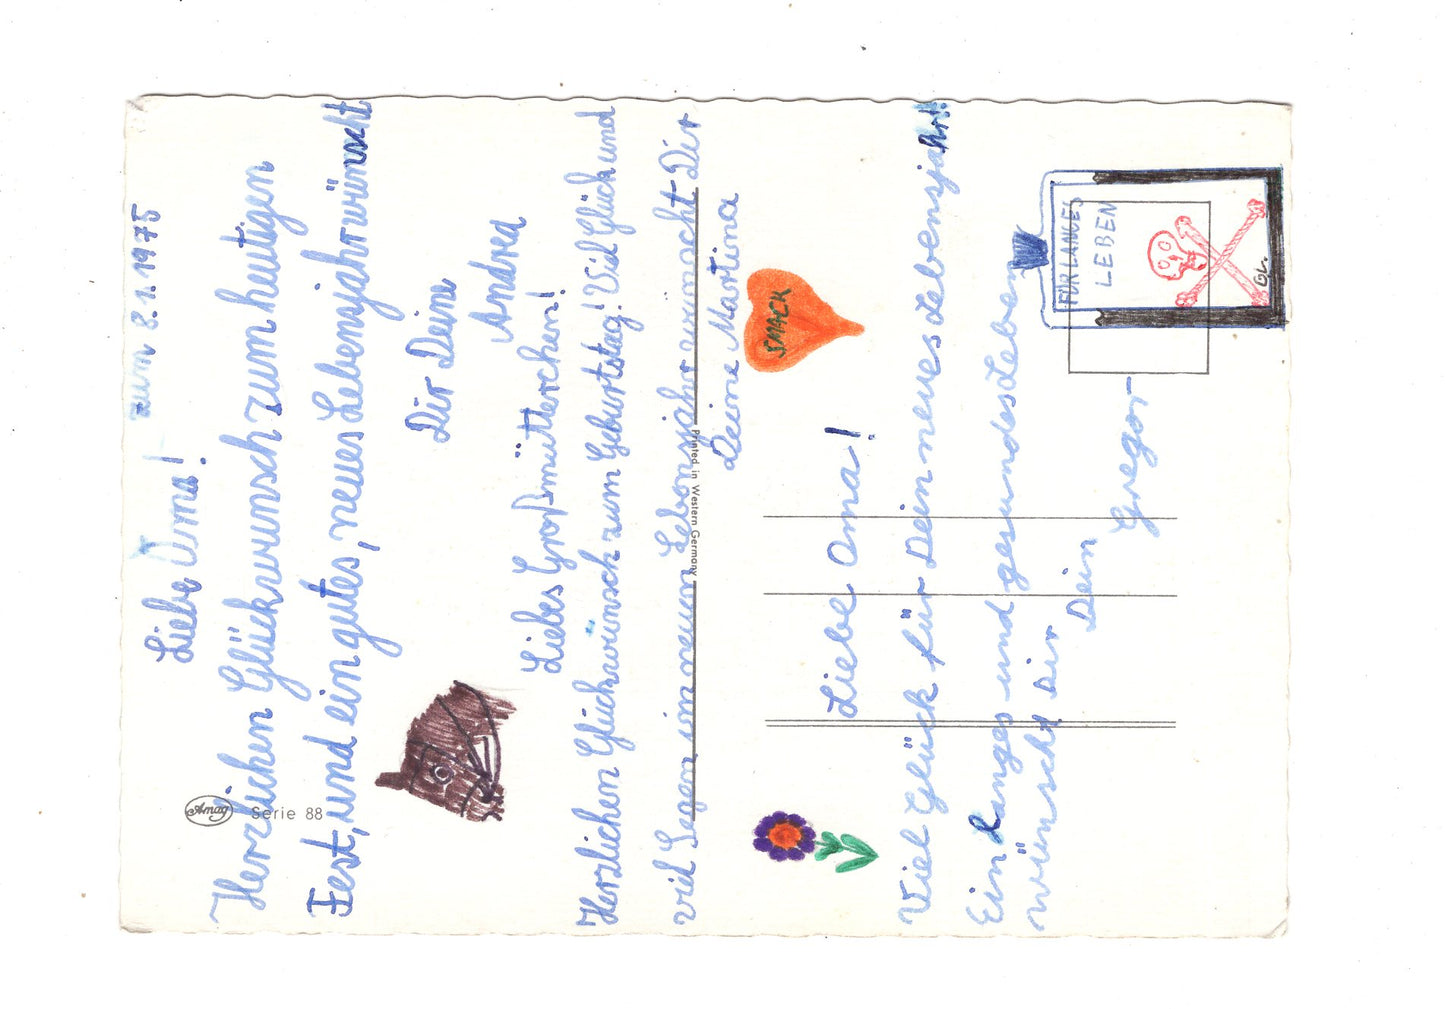 zum 8.1.1975
Liebe Oma!
Herzlichen Glückwunsch zum heutigen
Fest, und ein gutes, neues Lebensjahr wünscht
Dir Deine
Andrea
Liebes Großmütterchen!
Herzlichen Glückwunsch zum Geburtstag! Viel Glück und
viel Segen im neuen Lebensjahr wünscht Dir
Deine Martina
SMACK
Liebe Oma!
Viel Glück für Dein neues Lebensjahr!
Ein langes und gesundes Leben
wünscht Dir
Dein
Gregor
FÜR LANGES
LEBEN
GL.
Amag
Serie 88
Printed in Western Germany